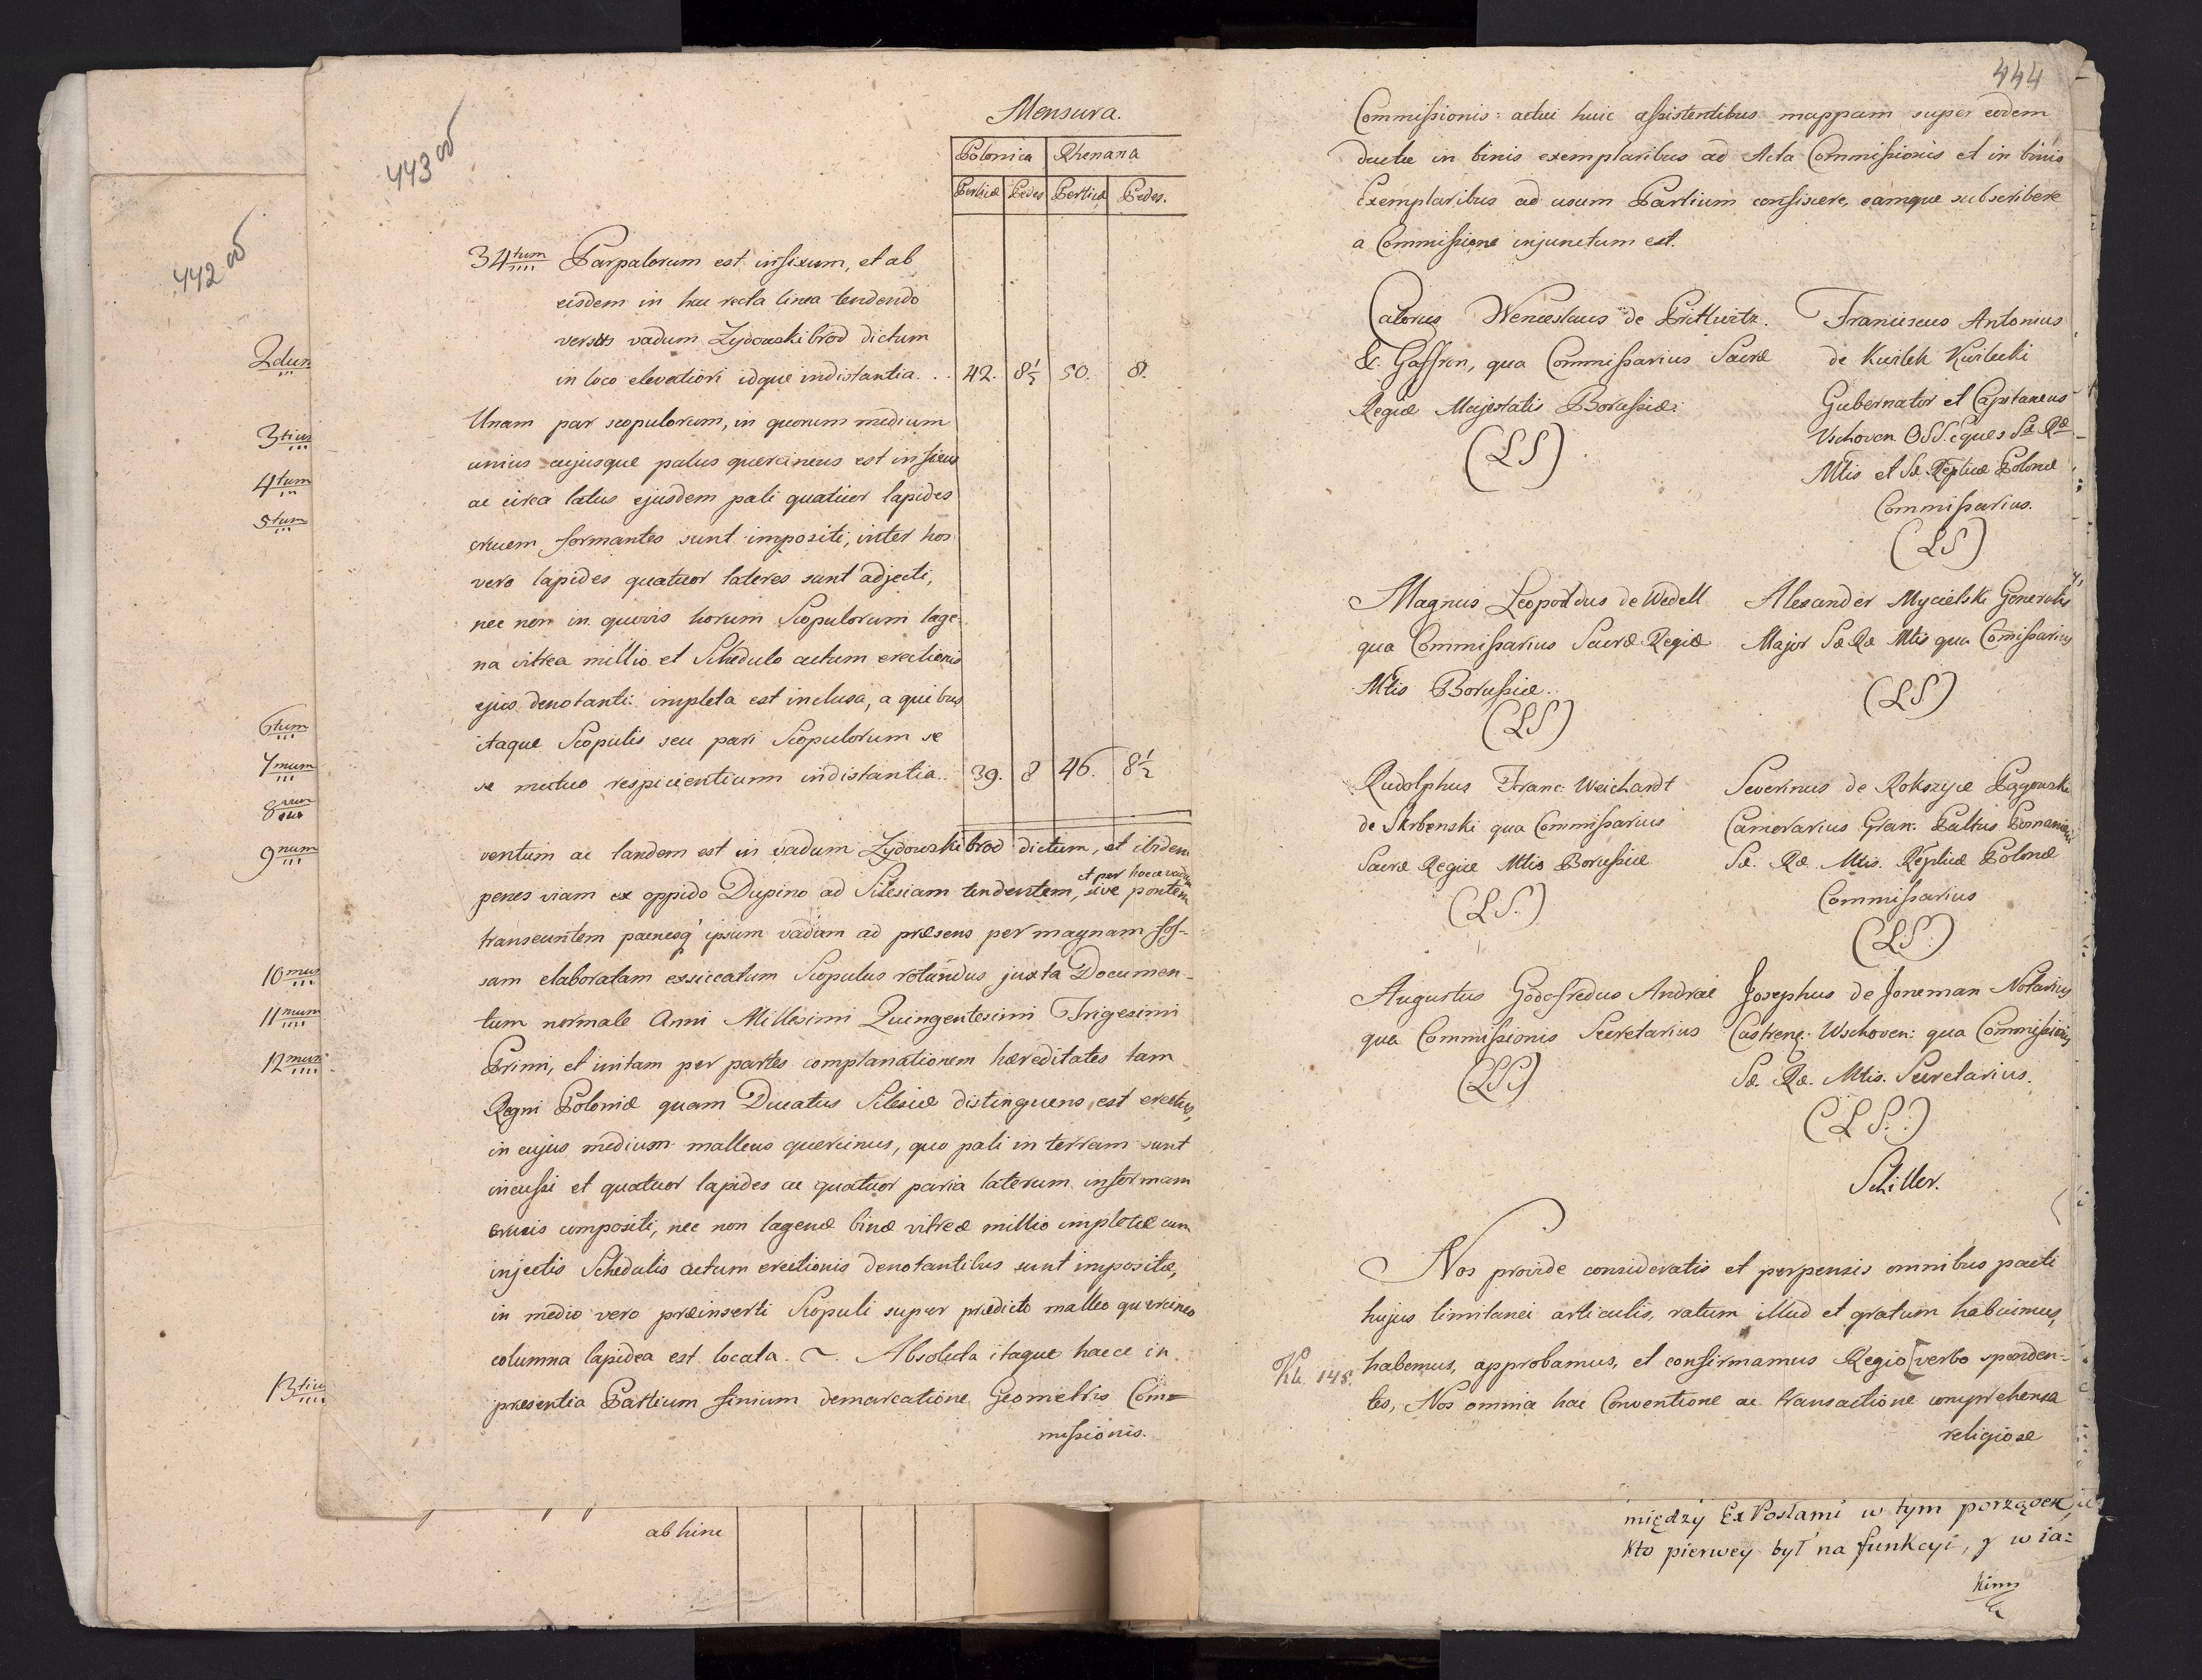 442 ob
2dum
3tius
4tum
5tum
6tum
7mum
8vum
9num
10mus
11mum
12mus
13tius
443 ob
Mensura.
Polonica Rhenana
Perticæ Pedes Perticæ Pedes.
34tum Par palorum est infixum, et ab
eisdem in hac recta linea tendendo
versus vadum Zydowskibrod dictum
in loco elevatiori idque indistantia . . 42. 8½ 50. 8.
Unam par scopulorum, in quorum medium
unius cujusque palus quercineus est infixus
ac circa latus ejusdem pali quatuor lapides
crucem formantes sunt impositi, inter hos
vero lapides quatuor lateres sunt adjecti,
nec non in quovis horum Scopulorum lage-
na vitrea millio et Schedulo actum erectionis
ejus denotanti impleta est inclusa, a quibus
itaque Scopulis seu pari Scopulorum se
se mutuo respicientium indistantia .. 39. 8 46. 8½
ventum ac tandem est in vadum Zydowskibrod dictum, et ibidem
penes viam ex oppido Dupino ad Silesiam tendentem, et per hocce vadum sive pontem
transeuntem paenesq ipsum vadum ad præsens per magnam fos-
sam elaboratam exsiccatum Scopulus rotundus juxta Documen-
tum normale Anni Millesimi Quingentesimi Trigesimi
Primi, et initam per partes complanationem hæreditates tam
Regni Poloniæ quam Ducatus Silesiæ distinguens est erectus,
in cujus medium malleus quercinus, quo pali in terram sunt
incussi et quatuor lapides ac quatuor paria laterum informam
crucis compositi, nec non lagenæ binæ vitreæ millio impletæ cum
injectis Schedulis actum erectionis denotantibus sunt impositæ,
in medio vero præinserti Scopuli super prædicto malleo quercineo
columna lapidea est locata. ~. Absoluta itaque haece in
presentia Partium finium demarcatione Geometris Com=
missionis.
ab hinc
444
Commissionis: actui huic assistentibus mappam super eodem
ductu in binis exemplaribus ad Acta Commissionis et in binis
Exemplaribus ad usum Partium conficere, eamque subscribere
a Commissione injunctum est.
Calorus Wenceslaus de Prittwitz.
& Gaffron, qua Commissarius Sacræ
Regiæ Majestatis Borussiæ:
(LS)
Franciscus Antonius
de Kwilcz Kwilecki
Gubernator et Capitaneus
Vschoven OSS. Eques Sæ Ræ
Mtis et Sæ Reptuæ Polonæ
Commissarius.
(LS)
Magnus Leopoldus de Wedell
qua Commissarius Sacræ Regiæ
Mtis Borussiæ.
(LS)
Alexander Mycielski Generalis
Major Sæ Ræ Mtis qua Comissarius
(LS)
Rudolphus Franc: Weichardt
de Skrbenski qua Commissarius
Sacræ Regiæ Mtis Borussiæ
(LS.)
Severinus de Rokszyce Pągowski
Camerarius Gran: Paltus Posnaniensis
Sæ. Ræ. Mtis. Reptuæ Polonæ
Commissarius
(LS)
Augustus Godofredus Andræ
qua Commissionis Secretarius
(LS.)
Josephus de Joneman Notarius
Castrens: Wschoven: qua Commissionis
Sæ. Ræ. Mtis. Secretarius.
(LS.)
Schiller.
Nos proinde consideratis et perpensis omnibus pacti
hujus limitanei articulis, ratum illud et gratum habuimus,
habemus, approbamus, et confirmamus Regio [verbo sponden-
148.
tes, Nos omnia hac Conventione ac transactione comprehensa
religiose
między Ex Posłami w tym porządek
Kto pierwey był na funkcyi, y w ia=
kim